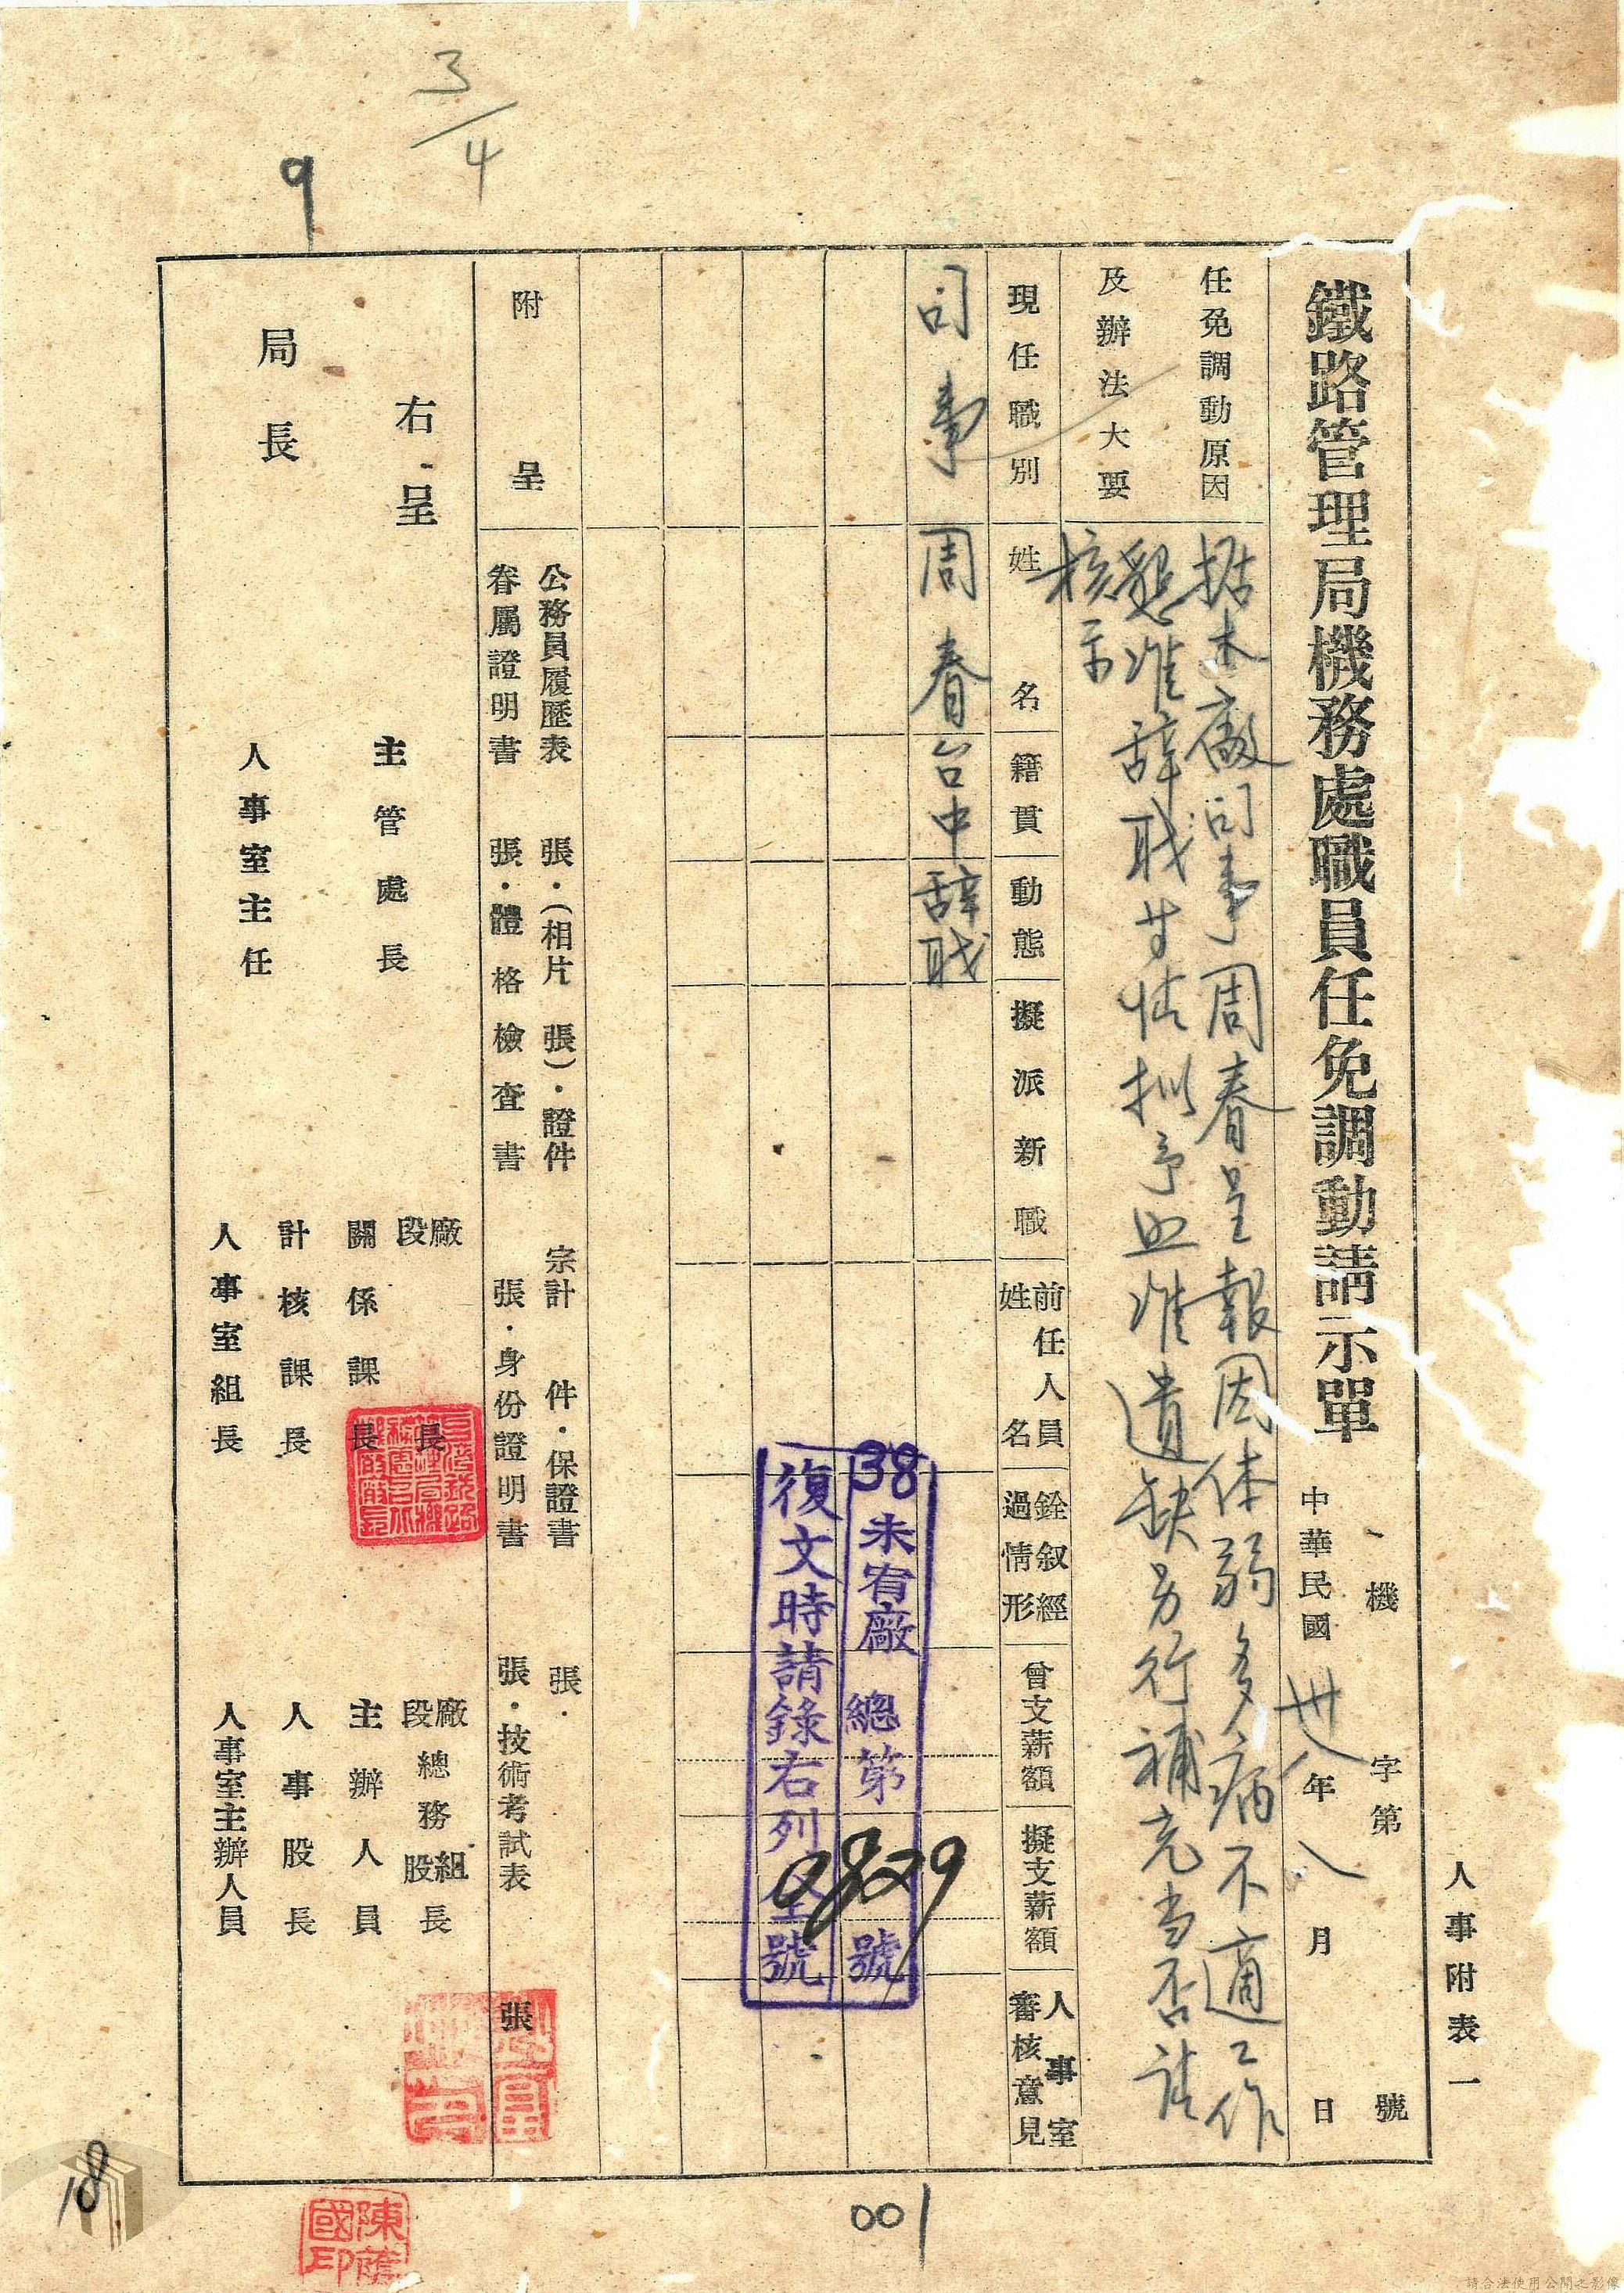 人事附表一
鐵路管理局機務處職員任免調動請示單
機 字第 號
中華民國 卅八 年 八 月 日
任免調動原因
及辦法大要
据本廠司事周春呈報因体弱多病不適工作
懇准辞職廿情拟予照准遺缺另行補充当否請
核示
現任職別
姓名
籍貫
動態
擬派新職
前任人員
姓名
銓叙經
過情形
曾支薪額
擬支薪額
人事室
審核意見
司事
周春
台中
辞職
38 未宥廠 總第 0829 號
復文時請錄右列 號
附呈
公務員履歷表 張·(相片 張)·證件 宗計 件·保證書 張·
眷屬證明書 張·體格檢查書 張·身份證明書 張·技術考試表 張
右呈
局長
主管處長
人事室主任
廠
段
長
關係課長
計核課長
人事室組長
廠
段
總務
組
股
長
主辦人員
人事股長
人事室主辦人員
陳
國印
3/4
9
18
001
請合法使用公開之影像